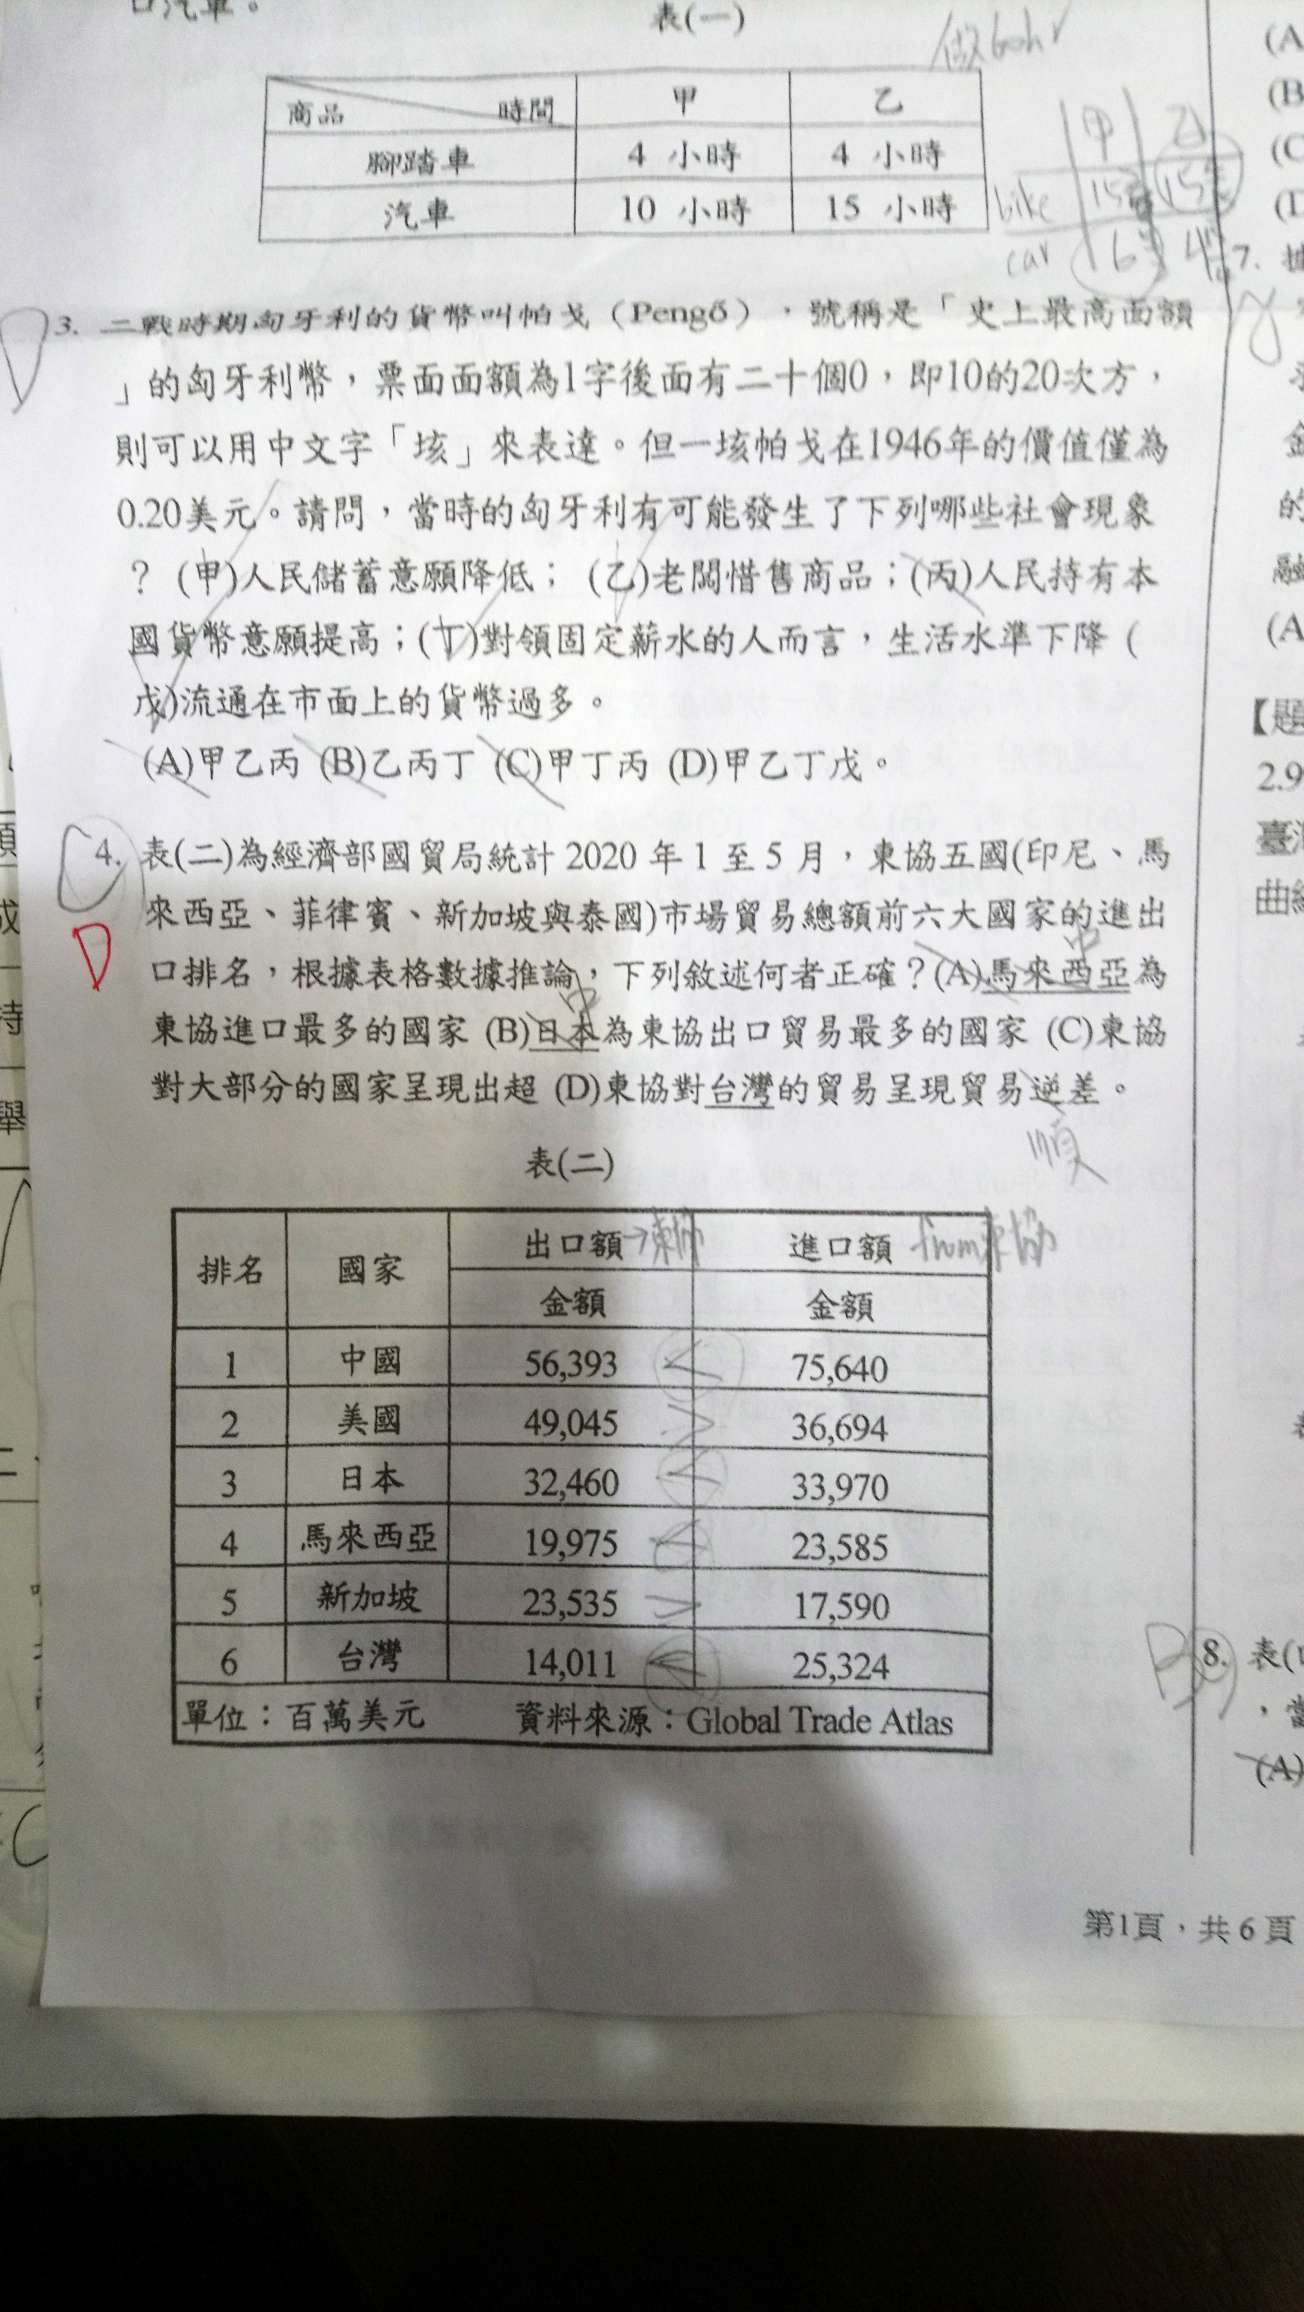 口汽車。
表(一)
做60h
商品 時間 甲 乙
腳踏車 4 小時 4 小時
汽車 10 小時 15 小時
甲 乙
bike 15 15
car 6 4
3. 二戰時期匈牙利的貨幣叫帕戈（Pengő），號稱是「史上最高面額
」的匈牙利幣，票面面額為1字後面有二十個0，即10的20次方，
則可以用中文字「垓」來表達。但一垓帕戈在1946年的價值僅為
0.20美元。請問，當時的匈牙利有可能發生了下列哪些社會現象
？(甲)人民儲蓄意願降低； (乙)老闆惜售商品；(丙)人民持有本
國貨幣意願提高；(丁)對領固定薪水的人而言，生活水準下降 (
戊)流通在市面上的貨幣過多。
(A)甲乙丙 (B)乙丙丁 (C)甲丁丙 (D)甲乙丁戊。
D
C
D
4. 表(二)為經濟部國貿局統計 2020 年 1 至 5 月，東協五國(印尼、馬
來西亞、菲律賓、新加坡與泰國)市場貿易總額前六大國家的進出
中
口排名，根據表格數據推論，下列敘述何者正確？(A)馬來西亞為
中
東協進口最多的國家 (B)日本為東協出口貿易最多的國家 (C)東協
對大部分的國家呈現出超 (D)東協對台灣的貿易呈現貿易逆差。
順
表(二)
排名 國家 出口額 →東協 進口額 from東協
金額 金額
1 中國 56,393 < 75,640
2 美國 49,045 > 36,694
3 日本 32,460 < 33,970
4 馬來西亞 19,975 < 23,585
5 新加坡 23,535 > 17,590
6 台灣 14,011 < 25,324
單位：百萬美元 資料來源：Global Trade Atlas
第1頁，共 6 頁
(A
(B
(C
7.
金
的
融
(A
【題
2.9
臺灣
曲
B
8. 表(
，當
(A)
成
持
舉